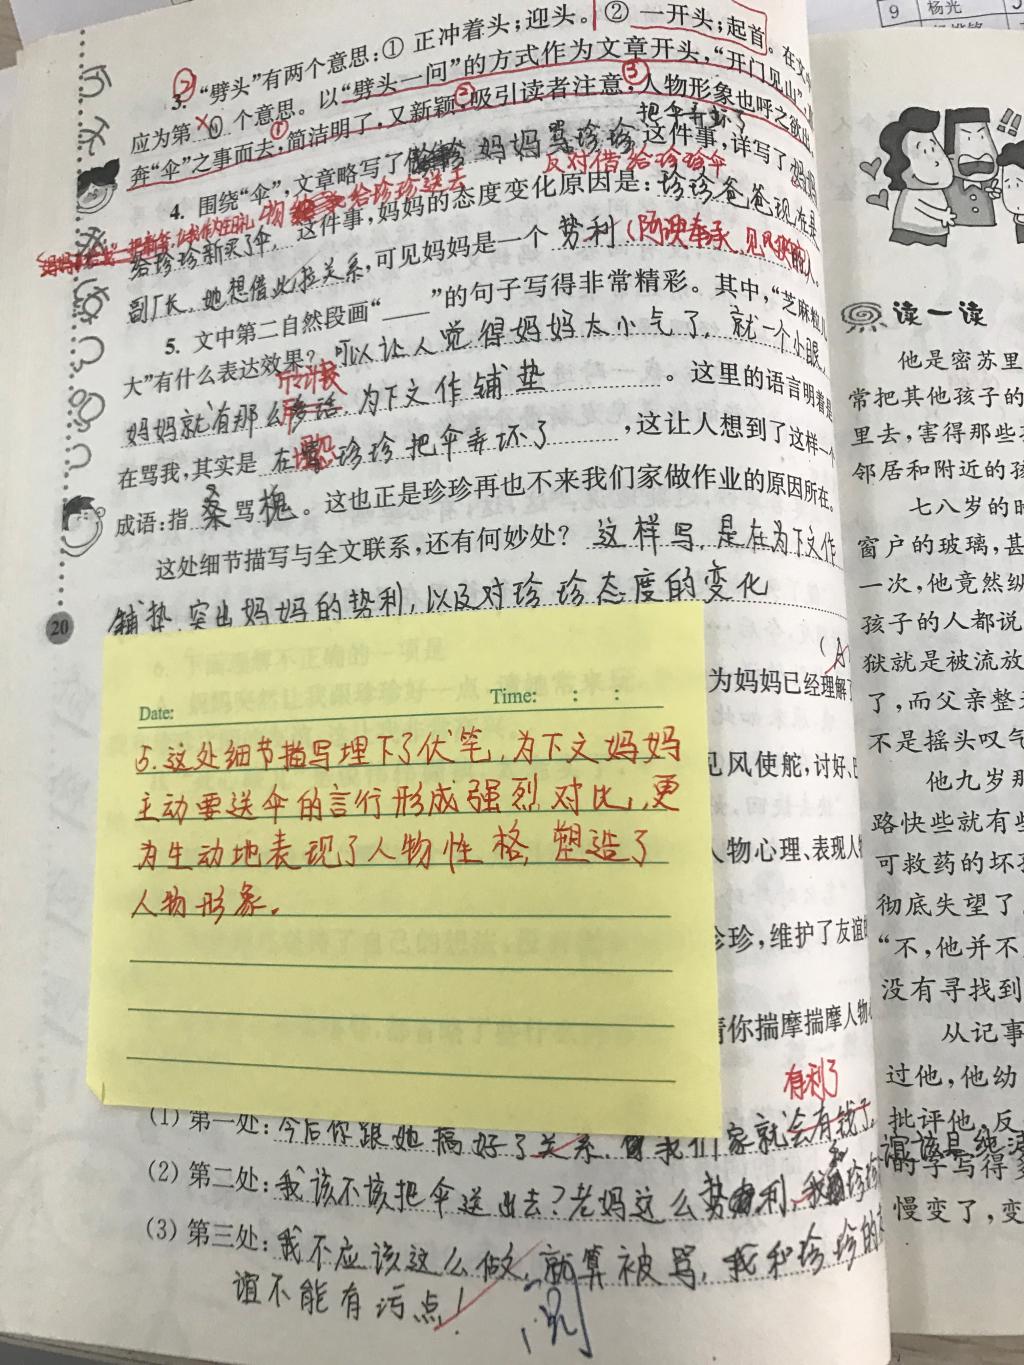 9 杨光
3. “劈头”有两个意思:① 正冲着头;迎头。② 一开头;起首。在文
应为第 ② 个意思。以“劈头一问”的方式作为文章开头,“开门见山”,
奔“伞”之事而去,简洁明了,又新颖,吸引读者注意,人物形象也呼之欲出
把伞弄坏了
4. 围绕“伞”,文章略写了 妈妈骂珍珍 这件事,详写了
反对借给珍珍伞
给珍珍送去
给珍珍新买了伞, 这件事,妈妈的态度变化原因是: 珍珍爸爸现在是
副厂长,她想借此拉关系,可见妈妈是一个 势利(阿谀奉承、见风使舵)的人。
5. 文中第二自然段画“____”的句子写得非常精彩。其中,“芝麻粒儿
大”有什么表达效果? 可以让人觉得妈妈太小气了,就一个小眼,
妈妈就有那么多话 为下文作铺垫 。这里的语言明着是
在骂我,其实是 在骂珍珍把伞弄坏了 ,这让人想到了这样一个
埋怨
成语:指 桑 骂 槐 。这也正是珍珍再也不来我们家做作业的原因所在。
这处细节描写与全文联系,还有何妙处? 这样写,是在为下文作
铺垫,突出妈妈的势利,以及对珍珍态度的变化
20
(A
为妈妈已经理解了
Date: Time: : :
5.这处细节描写埋下了伏笔,为下文妈妈
主动要送伞的言行形成强烈对比,更
为生动地表现了人物性格,塑造了
人物形象。
见风使舵,讨好、巴
人物心理、表现人物
珍珍,维护了友谊的
请你揣摩揣摩人物心
有利了
(1) 第一处: 今后你跟她搞好了关系,我们家就会有钱了
(2) 第二处: 我该不该把伞送出去?老妈这么势利,我和珍珍
(3) 第三处: 我不应该这么做,就算被骂,我和珍珍的友
谊不能有污点!
读一读
他是密苏里
常把其他孩子的
里去,害得那些孩
邻居和附近的孩
七八岁的时
窗户的玻璃,甚
一次,他竟然纵
孩子的人都说
狱就是被流放
了,而父亲整天
不是摇头叹气
他九岁那
路快些就有些
可救药的坏孩
彻底失望了。
“不,他并不
没有寻找到
从记事
过他,他幼
批评他,反
的字写得多
慢变了,变